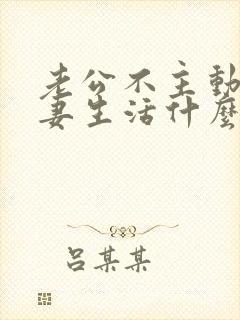 老公不主動
妻生活什麼
吕某某